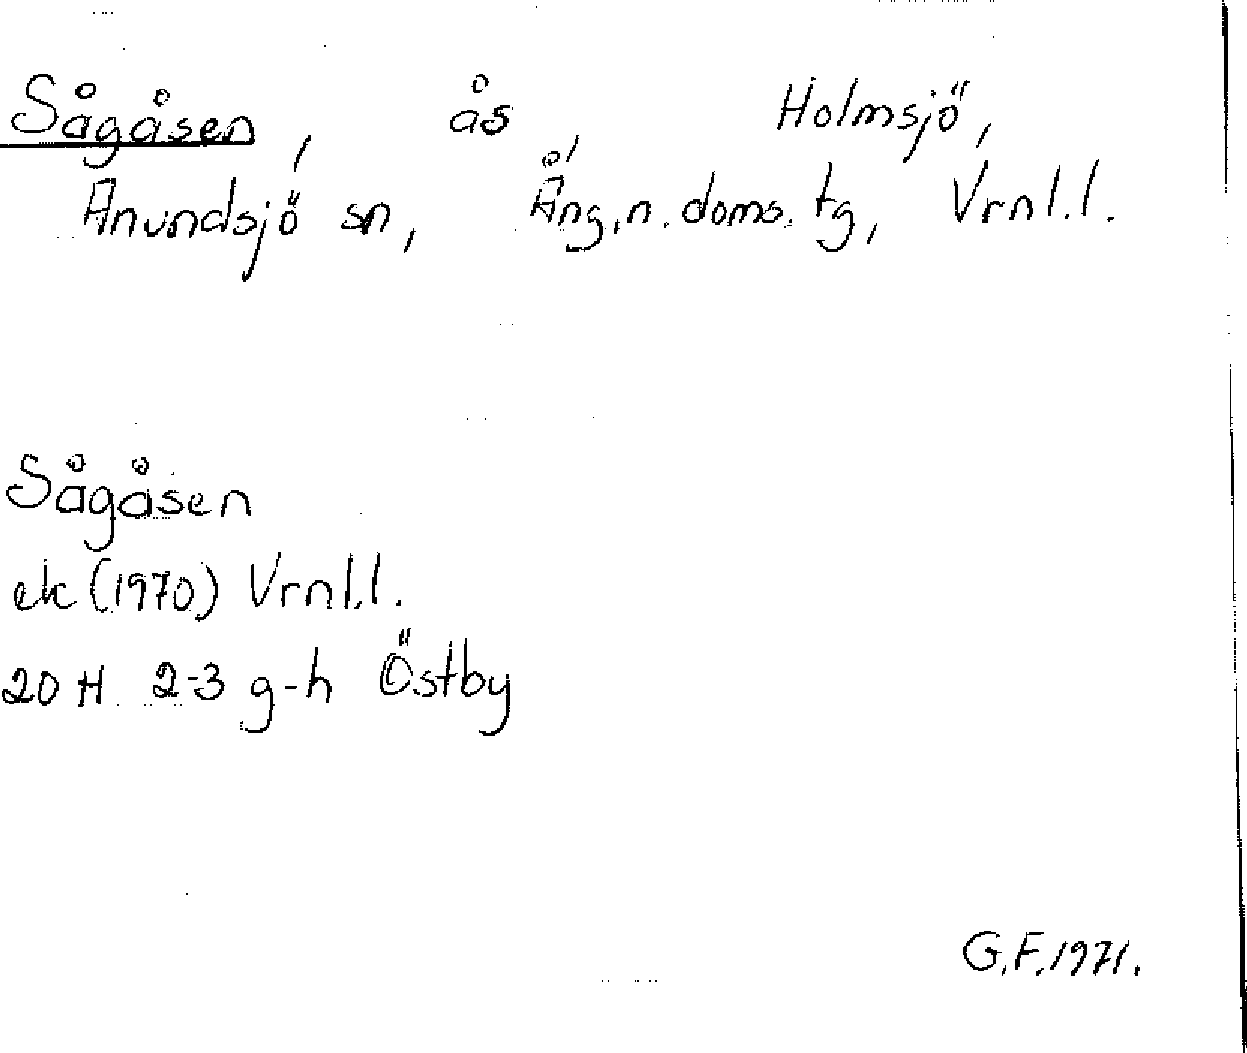 Sågåsen, ås, Holmsjö,
Anundsjö sn, Ång.n.doms.tg, Vrnl.l.
Sågåsen
ek (1970) Vrnl.l.
20 H 2-3 g-h Östby
G.F.1971.